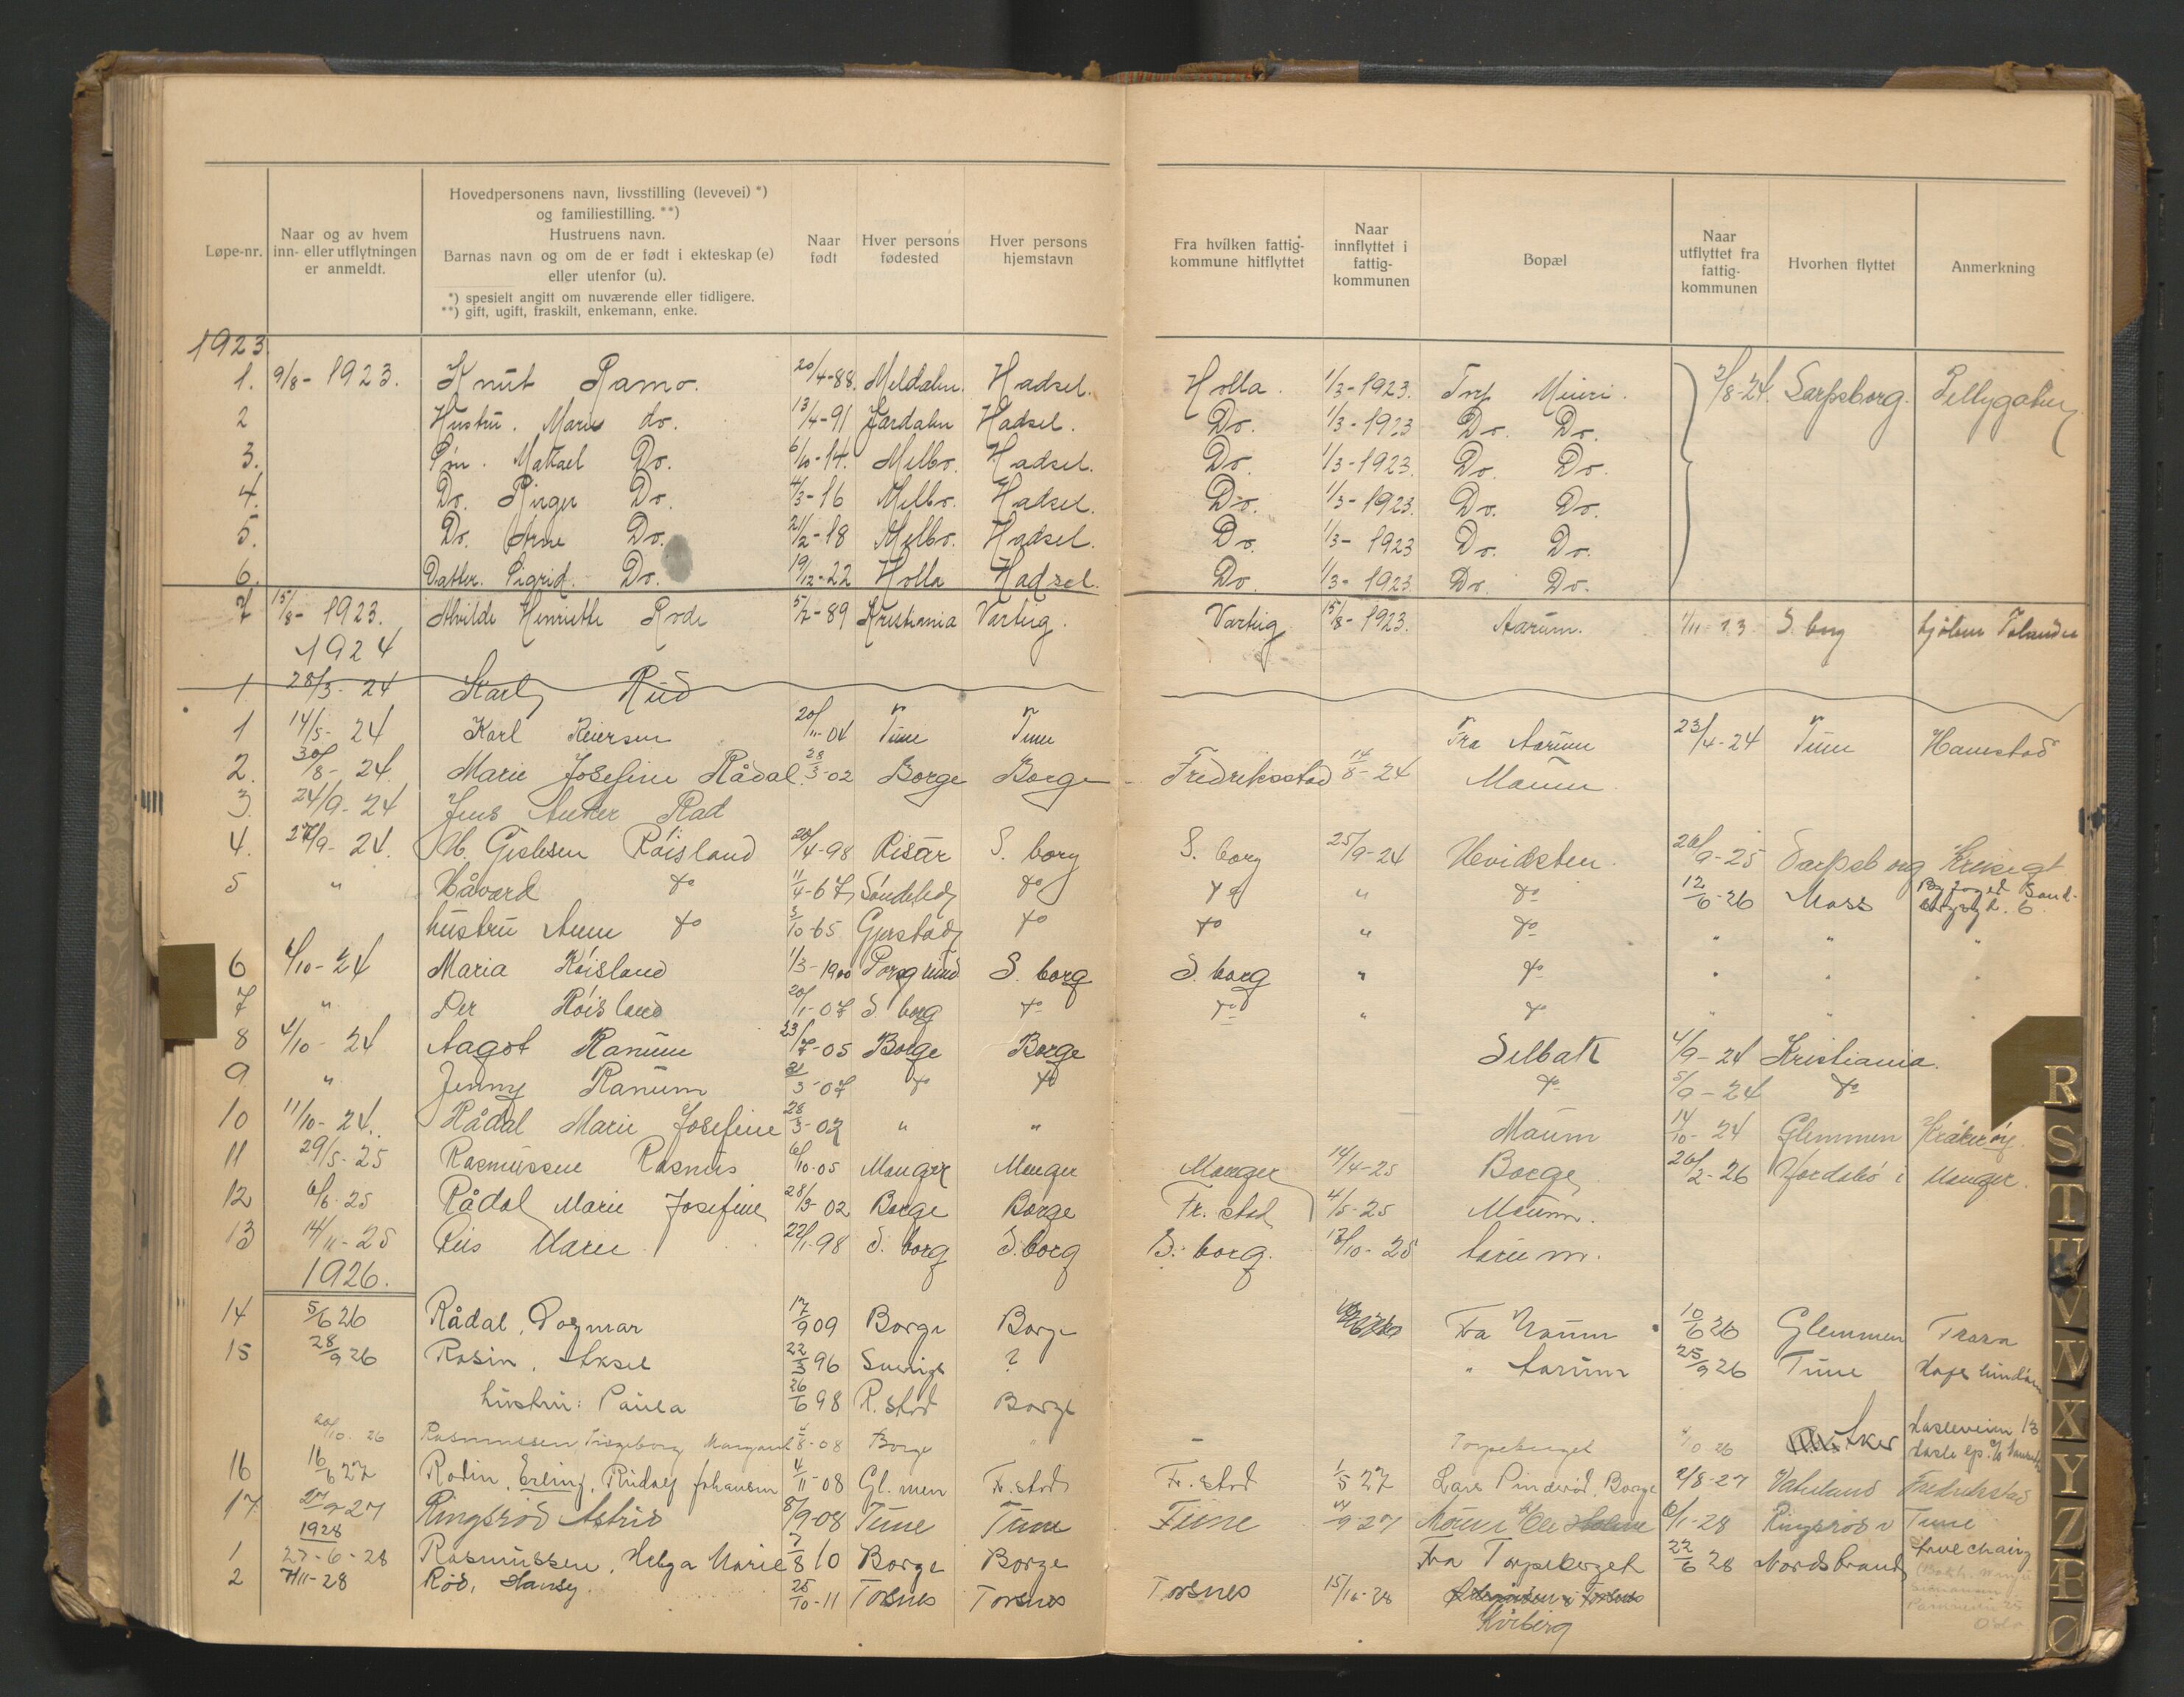 Løpe-nr. | Naar og av hvem inn- eller utflytningen er anmeldt. | Hovedpersonens navn, livsstilling (levevei) *) og familiestilling. **) Hustruens navn. Barnas navn og om de er født i ekteskap (e) eller utenfor (u). *) spesielt angitt om nuværende eller tidligere. **) gift, ugift, fraskilt, enkemann, enke. | Naar født | Hver persons fødested | Hver persons hjemstavn | Fra hvilken fattigkommune hitflyttet | Naar innflyttet i fattigkommunen | Bopæl | Naar utflyttet fra fattigkommunen | Hvorhen flyttet | Anmerkning
1923.
1. 9/8-1923. Knut Ramo. 20/4-88. Meldalen. Hadsel. Holla. 1/3-1923. Torp Meieri. /8-24. Sarpsborg.
2 Hustru. Marie do. 13/4-91 Hadsel. Do. 1/3-1923 Do. Do.
3. Søn. Do. 6/10-14. Melbo. Hadsel. Do. 1/3-1923. Do. Do.
4. Do. Birger Do. 4/3-16 Melbo. Hadsel. Do. 1/3-1923. Do. Do.
5. Do. Arne Do. 21/2-18 Melbo. Hadsel. Do. 1/3-1923 Do. Do.
6. Datter. Sigrid. Do. 19/12-22 Holla Hadsel. Do. 1/3-1923 Do. Do.
7 15/8-1923. Alvilde Henriette Rode 5/7-89 Kristiania Varteig. Varteig 15/8-1923. Aarum. 1/11-23 S.borg
1924
1 28/3-24 Karl Rud
1 14/5-24 Karl Reiersen 20/11-04 Tune Tune Fra Aarum 23/4-24 Tune Hanestad
2. 30/8-24. Marie Josefine Rådal. 28/3-02 Borge Borge - Fredriksstad 14/8-24 Moum
3 24/9-24 Jens Anker Rad
4. 27/9-24. Røisland 20/4-98 Risør S. borg S. borg 25/9-24 Hvidsten 20/9-25 Sarpsborg
5 " Håvard do 11/4-67 Søndeled do do " do 12/6-26 Moss Byfoged Sandbergsgt. 6
hustru Anne do 3/10-65 Gjerstad do do " do " " "
6 4/10-24 Maria Røisland 1/3-1900 Porsgrund S. borg S. borg " do " " "
7 " Per Røisland 20/1-07 S borg do do " do " " "
8 4/10-24 Aagot Ranum 23/7-05 Borge Borge Selbak 4/9-24 Kristiania.
9 " Jenny Ranum 3-07 do do do 5/9-24 do
10 11/10-24. Rådal Marie Josefine 28/3-02 " " Moum 14/10-24 Glemmen Kråkerøy.
11 29/5-25 Rasmussen Rasmus 6/10-05 Manger Manger Manger 14/4-25 Borge 20/2-26 i Manger.
12 6/6-25 Rådal Marie Josefine 28/3-02 Borge Borge Fr. stad 4/5-25 Moum.
13 14/11-25 Riis Marie 22/1-98 S. borg S. borg S. borg. 12/10-25 Aarum.
1926.
14 5/6 26 Rådal, Dagmar 17/9 09 Borge Borge Fra Moum 10/6 26 Glemmen Trara
15 28/9 26 Rosin, Aksel 22/3 96 Sverige ? " Aarum 25/9 26 Tune
hustru: Paula 26/6 98 F.stad Borge
20/10. 26 Rasmussen, Ingeborg Margaret 8-08 Borge " - Torpeberget /10 26 Aker Hasleveien 13
16 16/6 27 Rodin, Erling, Rudolf Johansen 4/11-08 Gl. men F. stad Fr. stad 1/5 27 Lars Pinderød, Borge 2/8-27 Fredrikstad
17. 27/9-27 Ringsrød Astrid 8/9-08 Tune Tune Tune /9 27 Moum 6/1-28 Ringsrød i Tune
1928
1 27-6-28 Rasmussen, Helga Marie 7/8 10 Borge Borge Fra Torpeberget 22/6 28 Nordstrand
2 7/11-28 Rød, Hansy. 25/10-11 Torsnes Torsnes Torsnes 15/10-28
Kviberg
Oslo
R
S
T
U
V
W
X
Y
Z
Æ
Ø